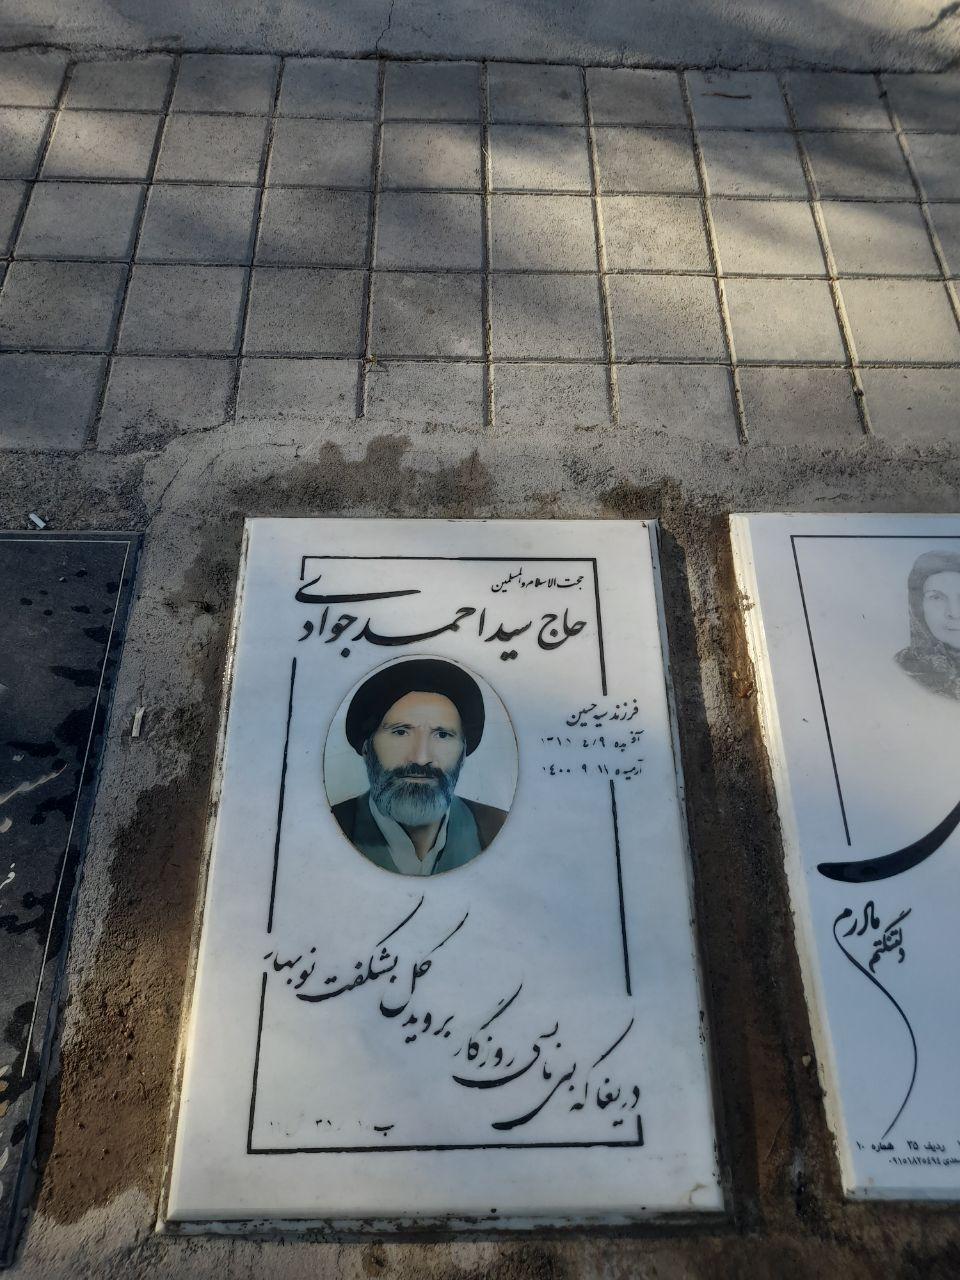 حجت الاسلام والمسلمین
حاج سید احمد جوادی
فرزند سید حسین
۱۳۱۱ ٤/۹
آرمیده ۱۱ ۹ ۱٤۰۰
دریغا که بی ما بسی روزگار
بروید گل بشکفت نوبهار
ب
۳۱
مادرم
دلتنگتم
ردیف ۲۵ شماره ۱۰
۰۹۱۵۱۸۲۵۴۹۴